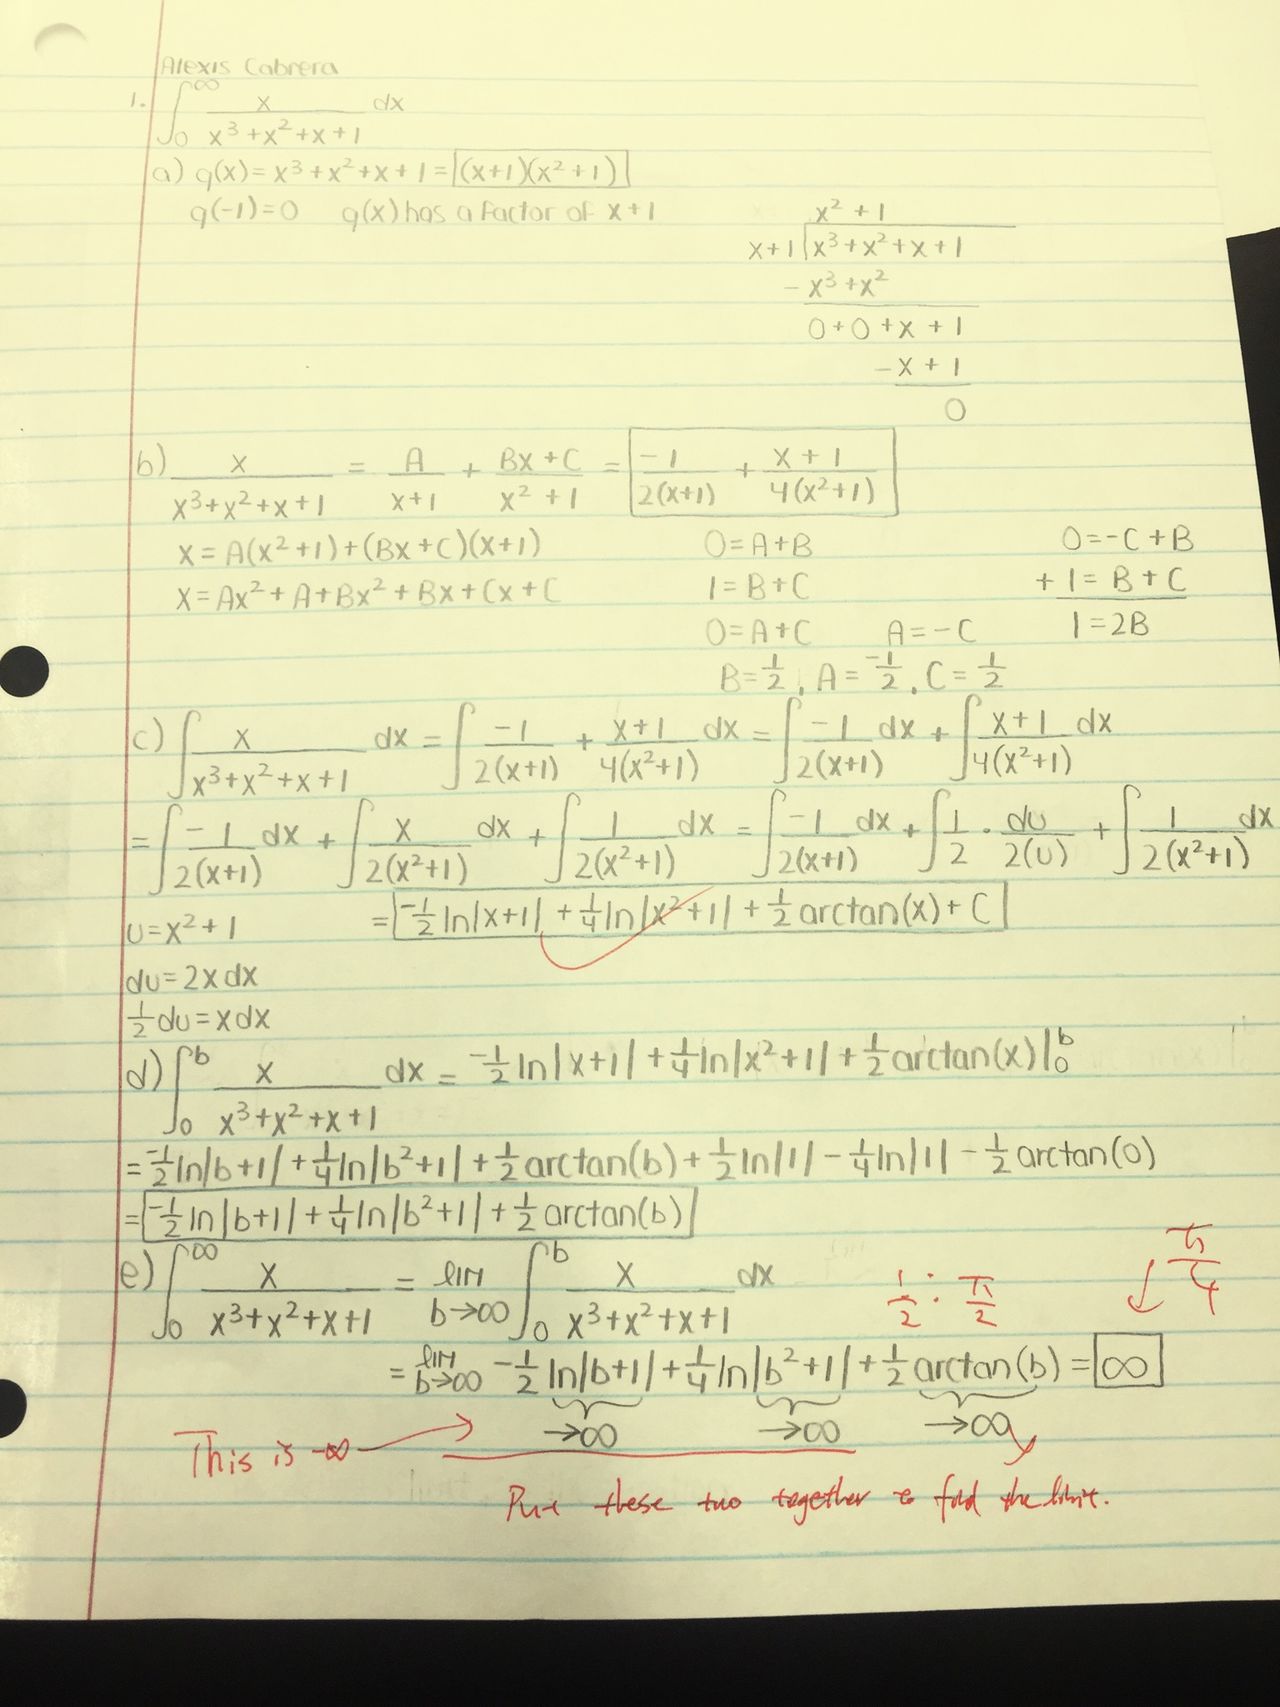 Alexis Cabrera
1. ∫₀^∞ x/(x³+x²+x+1) dx
a) q(x)=x³+x²+x+1=(x+1)(x²+1)
q(-1)=0 q(x) has a factor of x+1
x²+1
x+1 | x³+x²+x+1
- x³+x²
0+0+x+1
-x+1
0
b) x/(x³+x²+x+1) = A/(x+1) + (Bx+C)/(x²+1) = -1/(2(x+1)) + (x+1)/(4(x²+1))
x=A(x²+1)+(Bx+C)(x+1) 0=A+B 0=-C+B
x=Ax²+A+Bx²+Bx+Cx+C 1=B+C + 1=B+C
0=A+C A=-C 1=2B
B=1/2, A=-1/2, C=1/2
c) ∫ x/(x³+x²+x+1) dx = ∫ -1/(2(x+1)) + (x+1)/(4(x²+1)) dx = ∫ -1/(2(x+1)) dx + ∫ (x+1)/(4(x²+1)) dx
= ∫ -1/(2(x+1)) dx + ∫ x/(2(x²+1)) dx + ∫ 1/(2(x²+1)) dx = ∫ -1/(2(x+1)) dx + ∫ 1/2 · du/(2(u)) + ∫ 1/(2(x²+1)) dx
u=x²+1 = -1/2 ln|x+1| + 1/4 ln|x²+1| + 1/2 arctan(x) + C
du=2xdx
1/2 du=xdx
d) ∫₀^b x/(x³+x²+x+1) dx = -1/2 ln|x+1| + 1/4 ln|x²+1| + 1/2 arctan(x)|₀^b
= -1/2 ln|b+1| + 1/4 ln|b²+1| + 1/2 arctan(b) + 1/2 ln|1| - 1/4 ln|1| - 1/2 arctan(0)
= -1/2 ln|b+1| + 1/4 ln|b²+1| + 1/2 arctan(b)
e) ∫₀^∞ x/(x³+x²+x+1) = lim b→∞ ∫₀^b x/(x³+x²+x+1) dx 1/2 · π/2 π/4
= lim b→∞ -1/2 ln|b+1| + 1/4 ln|b²+1| + 1/2 arctan(b) = ∞
→∞ →∞ →∞
This is -∞
Put these two together to find the limit.